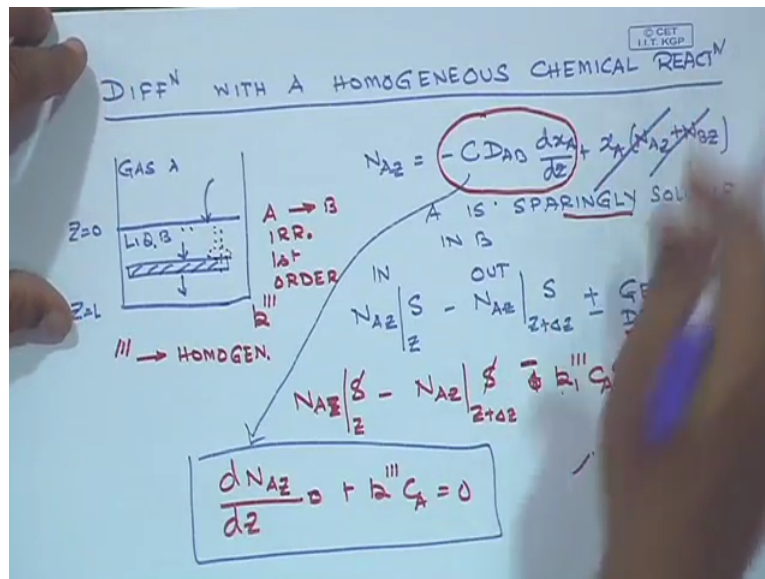 © CET
I.I.T. KGP
DIFFᴺ WITH A HOMOGENEOUS CHEMICAL REACTᴺ
GAS A
Z=0
LIQ, B
Z=L
A → B
IRR.
1st
ORDER
k'''
''' → HOMOGEN.
N_AZ = - C D_AB dx_A/dz + x_A (N_AZ + N_BZ)
A IS SPARINGLY
IN B
IN OUT
N_AZ|_Z S - N_AZ|_Z+ΔZ S ±
N_AZ|_Z S - N_AZ|_Z+ΔZ S - k_1''' C_A
dN_AZ/dZ + k''' C_A = 0